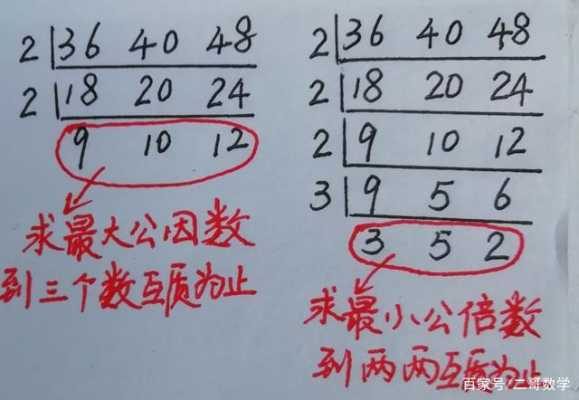 2 36 40 48
2 18 20 24
9 10 12
求最大公因数
到三个数互质为止
2 36 40 48
2 18 20 24
2 9 10 12
3 9 5 6
3 5 2
求最小公倍数
到两两互质为止
百家号/二哥数学